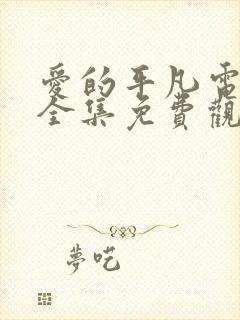 愛的平凡電
全集免費觀
夢吃